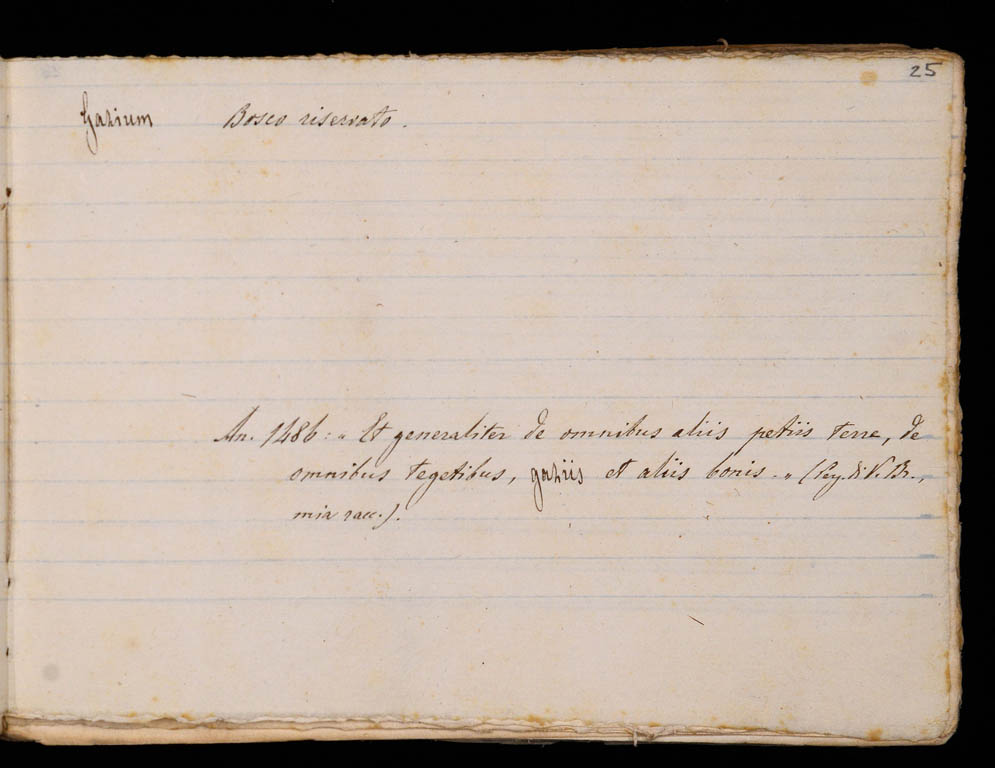 25
Gazium Bosco riservato.
An. 1486: „ Et generaliter de omnibus aliis petiis terre, de
omnibus tegetibus, gaziis et aliis bonis. „ (
mia racc.).